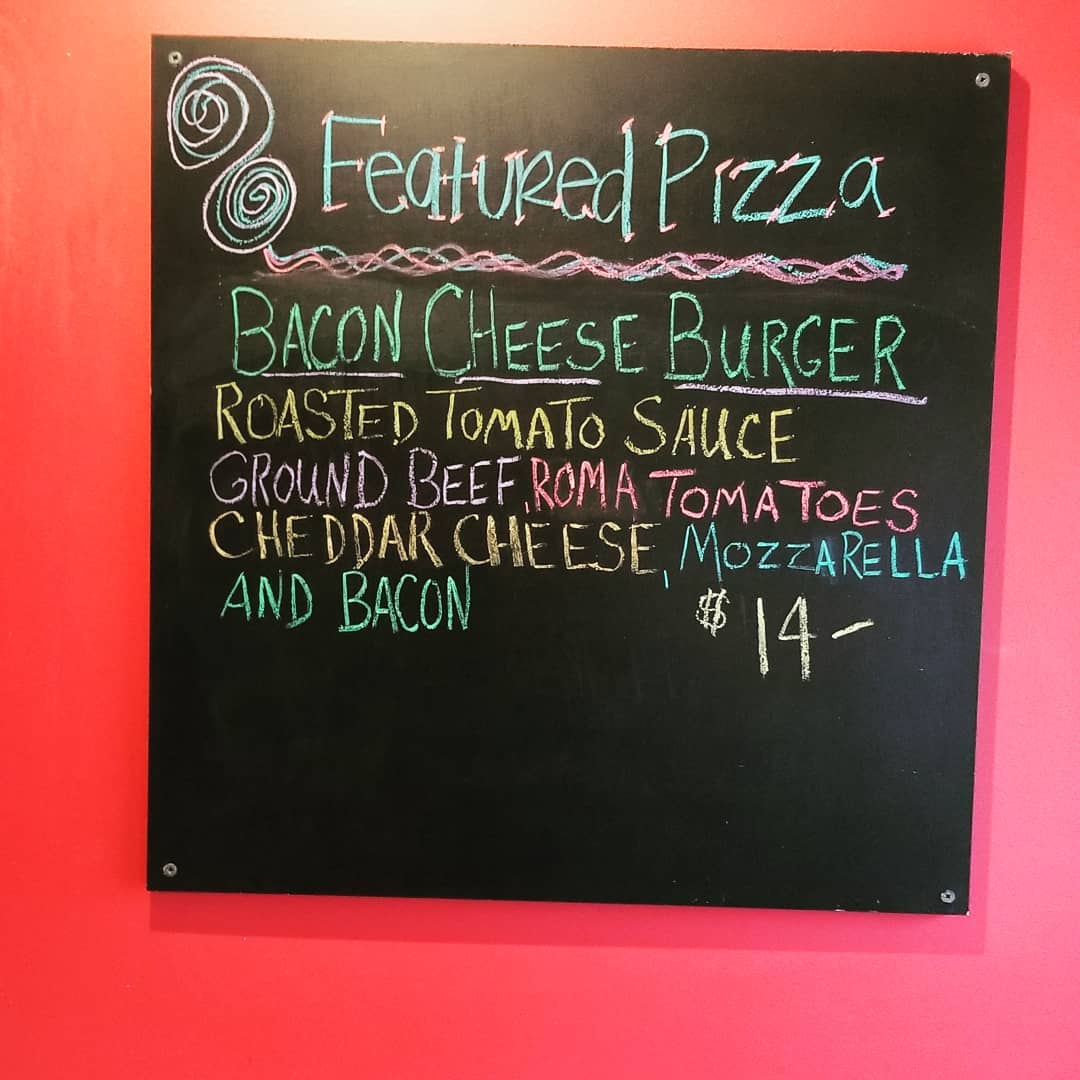 Featured Pizza
BACON CHEESE BURGER
ROASTED TOMATO SAUCE
GROUND BEEF, ROMA TOMATOES
CHEDDAR CHEESE, MOZZARELLA
AND BACON $14-